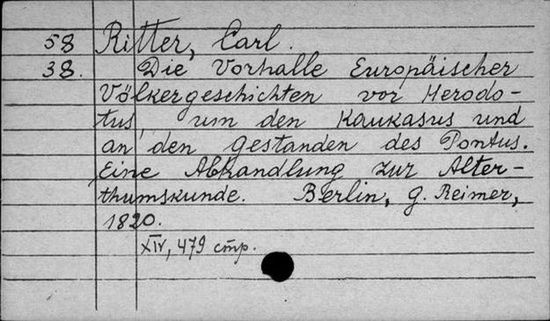 58 Ritter, Carl.
38. Die Vorhalle Europäischer
Völkergeschichten vor Herodo-
tus, um den Kaukasus und
an den gestanden des Pontus.
Eine Abhandlung zur Alter-
thumskunde. Berlin, G. Reimer,
1820.
XIV, 479 стр.